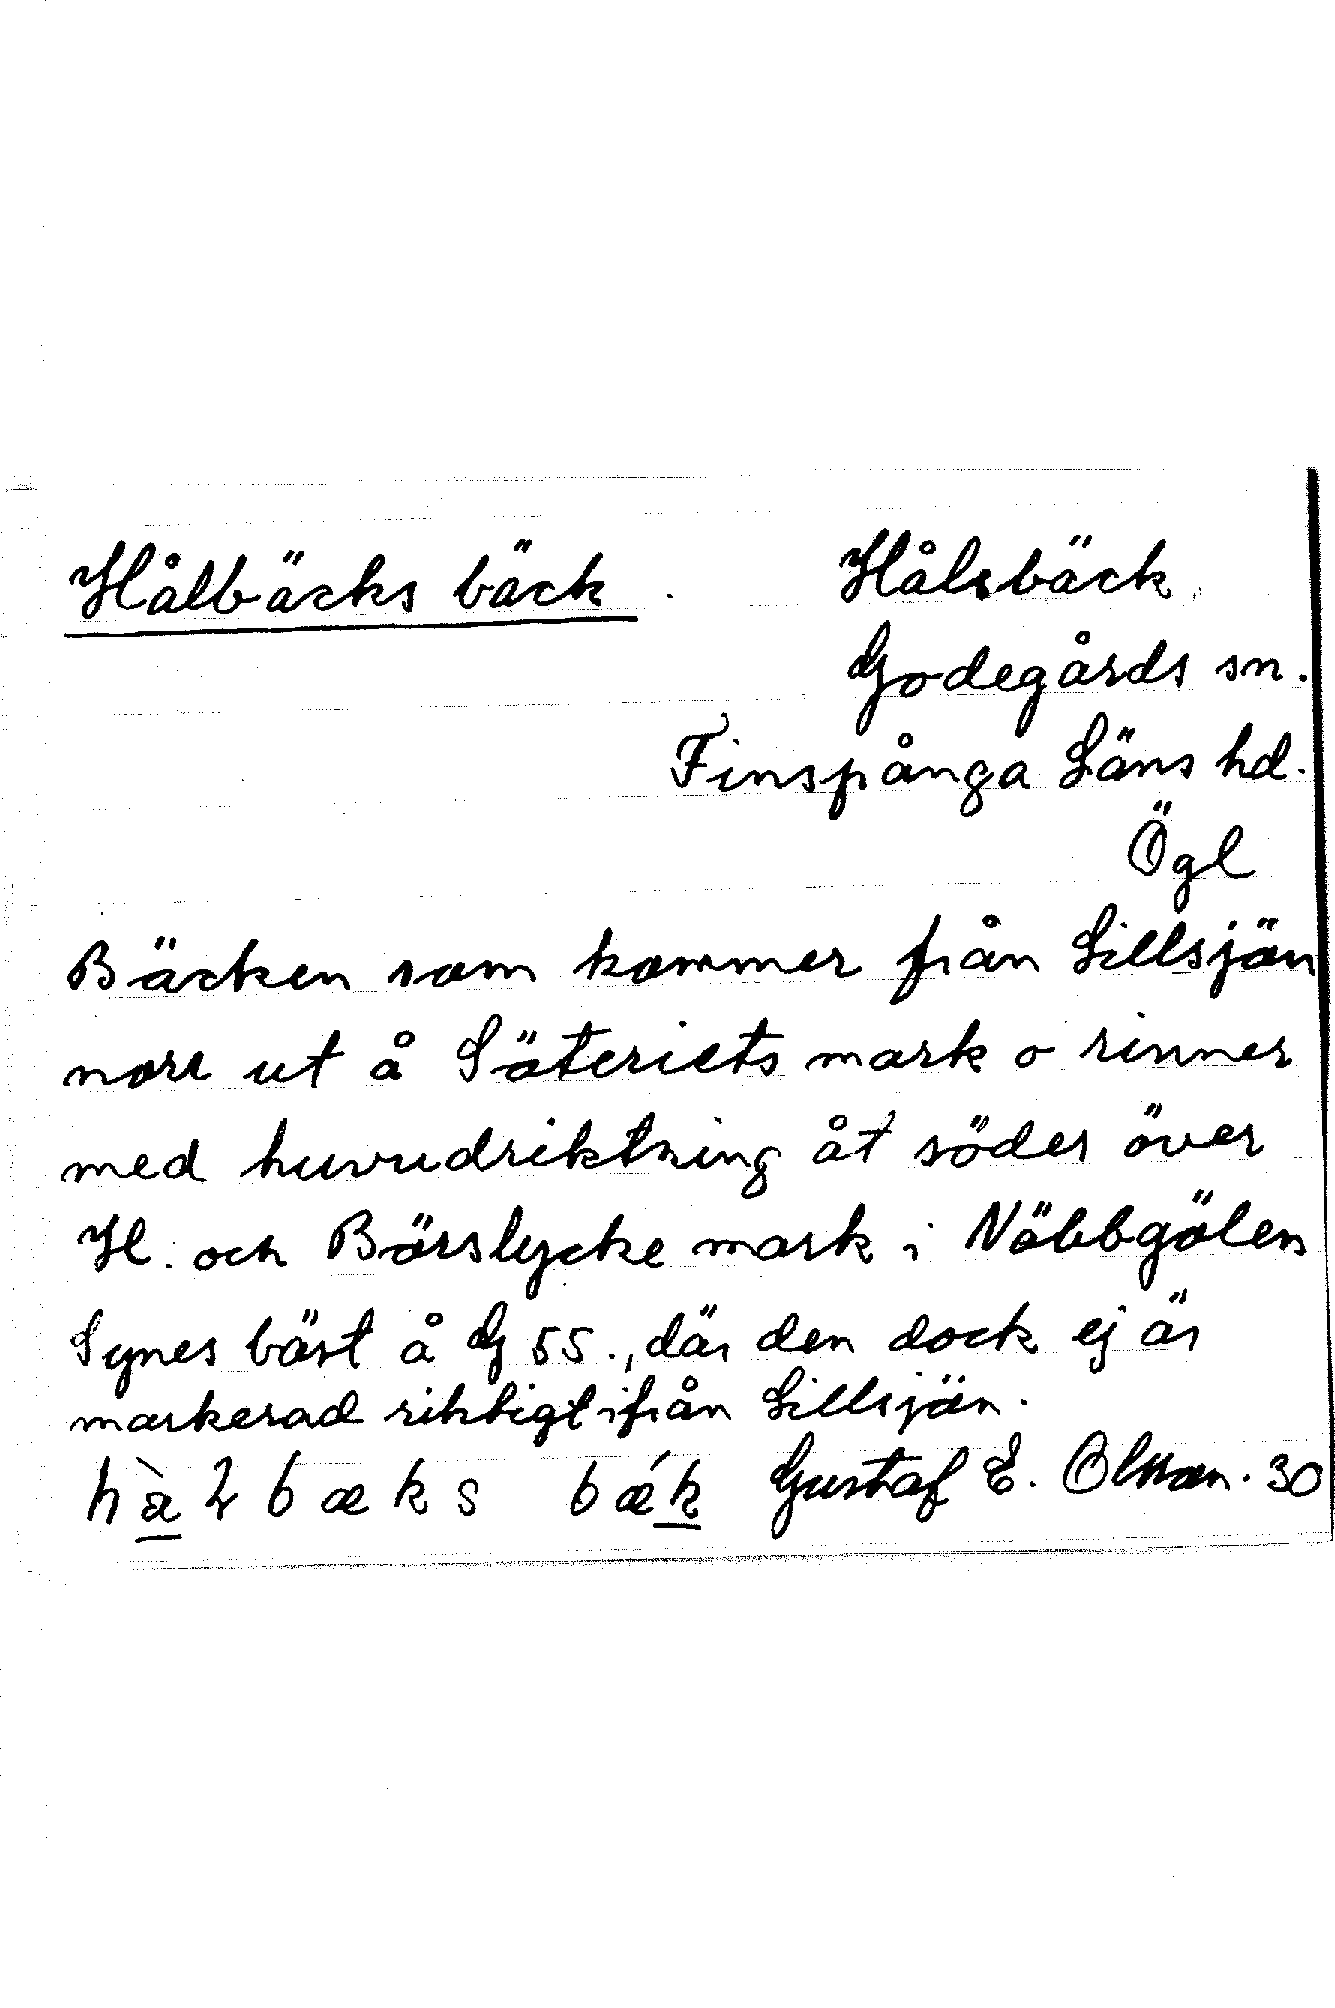 Hålbäcks bäck. Hålsbäck
Godegårds sn.
Finspånga Läns hd.
Ögl
Bäcken som kommer från Lillsjön
norr ut å Säteriets mark o rinner
med huvudriktning åt söder över
H. och Börslycke mark i Nöbbgölen
Synes bäst å G 55., där den dock ej är
markerad riktigt ifrån Lillsjön.
bæks bǽk Gustaf E. Olsson. 30